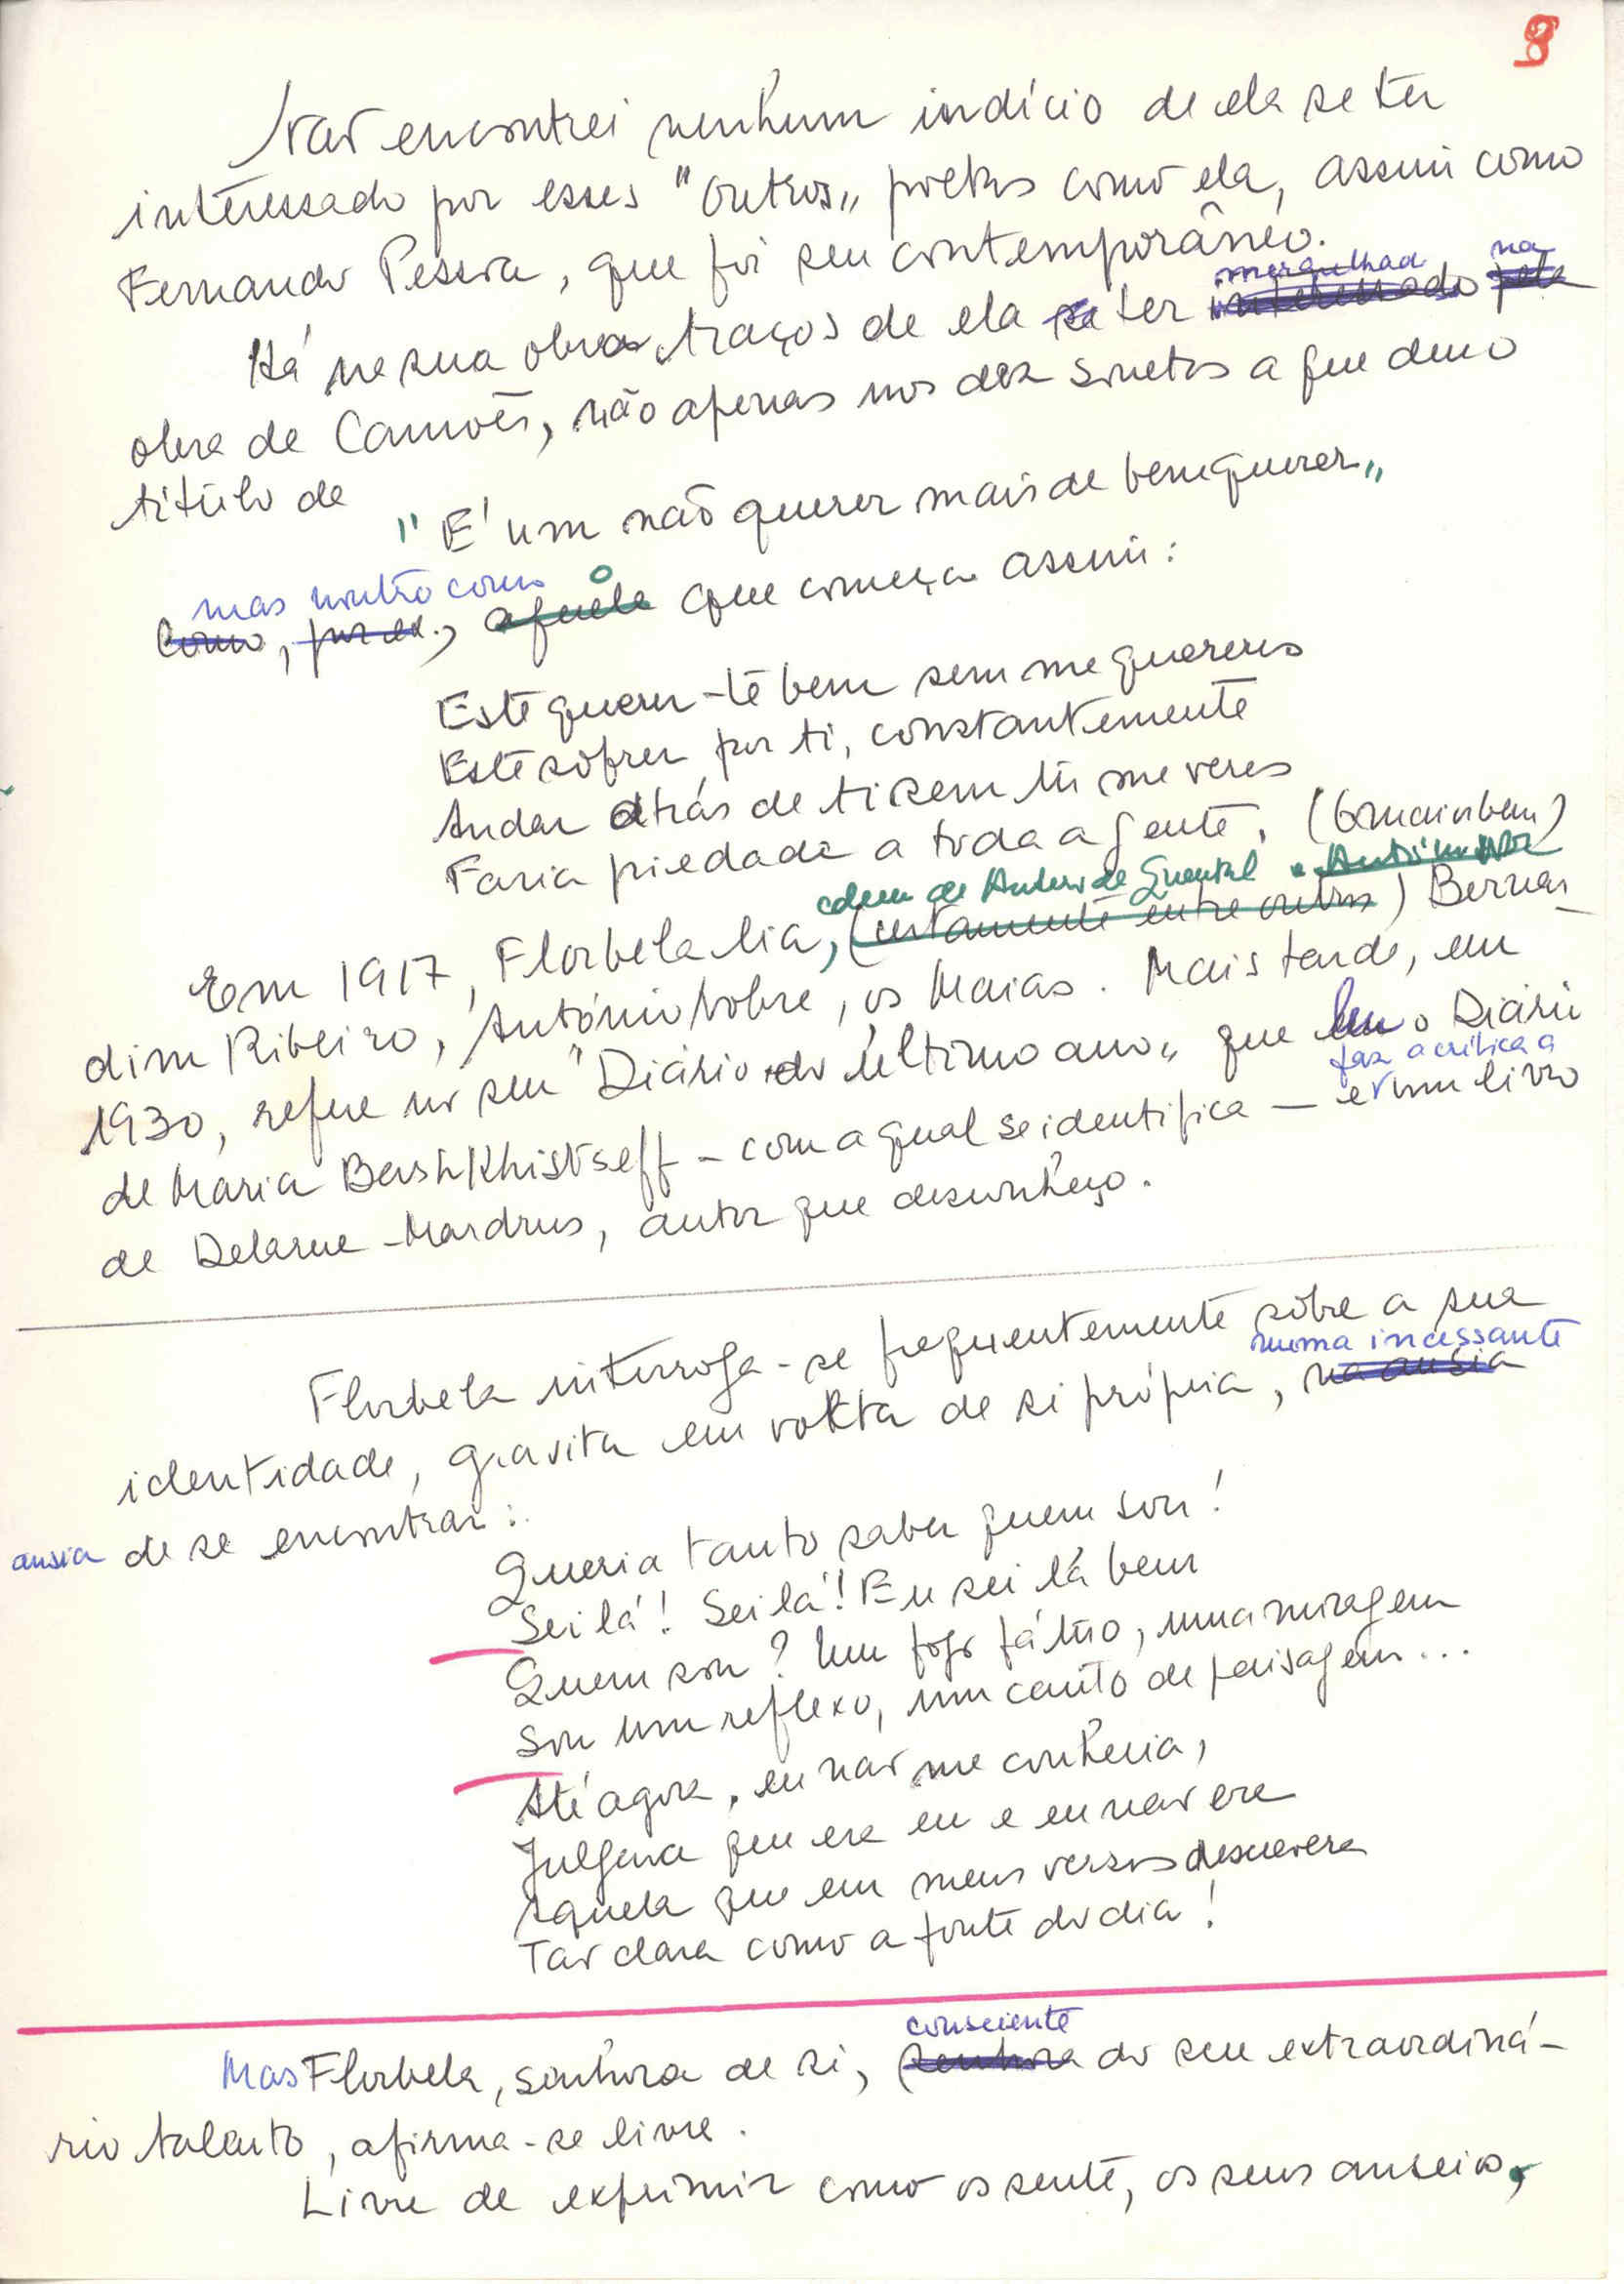 8
Não encontrei nenhum indício de ela se ter
interessado por esses "outros„ poetas como ela, assim como
Fernando Pessoa, que foi seu contemporâneo.
mergulhado na
Há na sua obra traços de ela se ter interessado pela
obra de Camões, não apenas nos dez sonetos a que deu o
título de
"É um não querer mais de bem querer„
mas noutro como o
Como, por ex., aquele que começa assim:
Este querer-te bem sem me quereres
Este sofrer por ti, constantemente
Andar atrás de ti sem tu me veres
Faria piedade a toda a gente. (
além de Antero de Quental e António Nobre
Em 1917, Florbela lia, (certamente entre outros) Bernar-
dim Ribeiro, António Nobre, os Maias. Mais tarde, em
1930, refere no seu "Diário do último ano„ que leu o Diário
faz a crítica a
de Maria Bashkhistseff - com a qual se identifica — e um livro
de Delarue-Mardrus, autor que desconheço.
Florbela interroga-se frequentemente sobre a sua
numa incessante
identidade, gravita em volta de si própria, na ansia
ansia de se encontrar:
Queria tanto saber quem sou!
Sei lá! Sei lá! Eu sei lá bem
Quem sou? Um fogo fátuo, uma miragem
Sou um reflexo, um canto de paisagem...
Até agora, eu não me conhecia,
Julgava que era eu e eu não era
Aquela que em meus versos descrevera
Tão clara como a fonte do dia!
consciente
Mas Florbela, senhora de si, (senhora do seu extraordiná-
rio talento, afirma-se livre.
Livre de exprimir como os sente, os seus anseios,